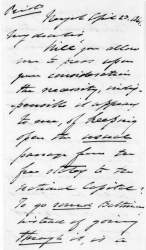 New York April 23, 1861.
My dear Sir:
Will you allow
me to press upon
your consideration
the necessity, indis-
pensable it appears
to me, of keeping
open the usual
passage from the
free States to the
national Capital?
To go round Baltimore
instead of going
through it, is a